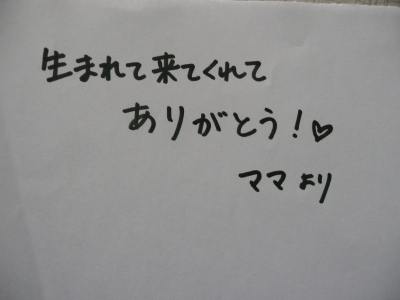 生まれて来てくれて
ありがとう!♡
ママより